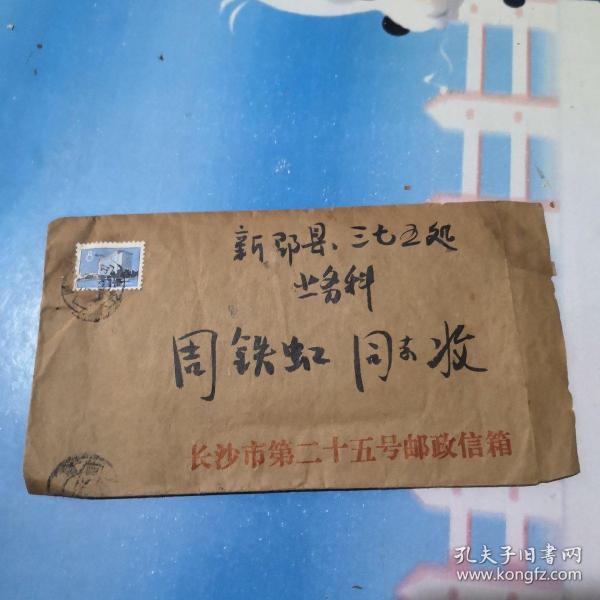 8
新邵县、三七五处
业务科
周铁虹 同志收
长沙市第二十五号邮政信箱
孔夫子旧书网
www.kongfz.com